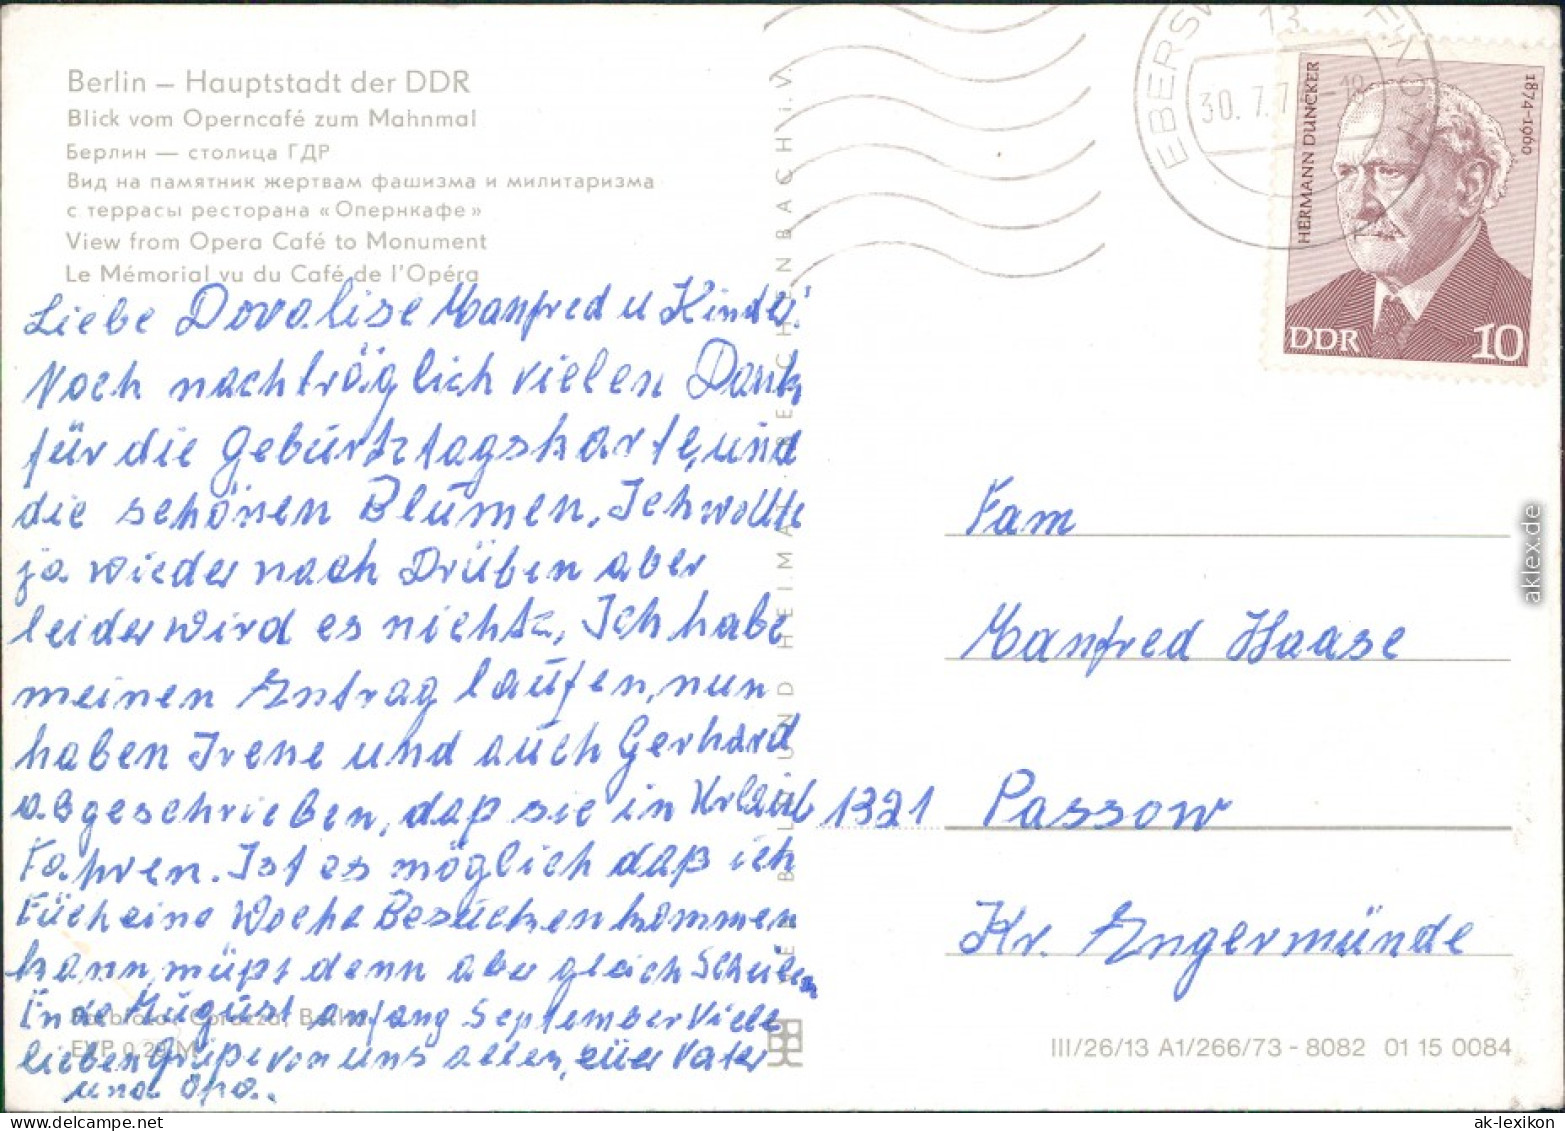 Berlin – Hauptstadt der DDR
Blick vom Operncafé zum Mahnmal
Берлин — столица ГДР
Вид на памятник жертвам фашизма и милитаризма
с террасы ресторана «Опернкафе»
View from Opera Café to Monument
Le Mémorial vu du Café de l'Opéra
Liebe Dovalise Manfred u Kinder!
Noch nachträglich vielen Dank
für die Geburtztagskarte, und
die schönen Blumen, Ich wollte
ja wieder nach Drüben aber
leider wird es nichtz, Ich habe
meinen Antrag laufen, nun
haben Irene und auch Gerhard
abgeschrieben, daß sie in Urlaub
Fahren. Ist es möglich daß ich
Euch eine Woche Besuchen kommen
kann, müßt denn aber gleich Schreiben
Ende August anfang September Viele
lieben Grüße von uns allen, euer Vater
und Opa.
EVP 0,20 M
EBERSW FINOW
13
30. 7. 7 -18
HERMANN DUNCKER
1874-1960
DDR 10
Fam
Manfred Haase
1321 Passow
Kr. Angermünde
III/26/13 A1/266/73 - 8082 01 15 0084
aklex.de
ak-lexikon